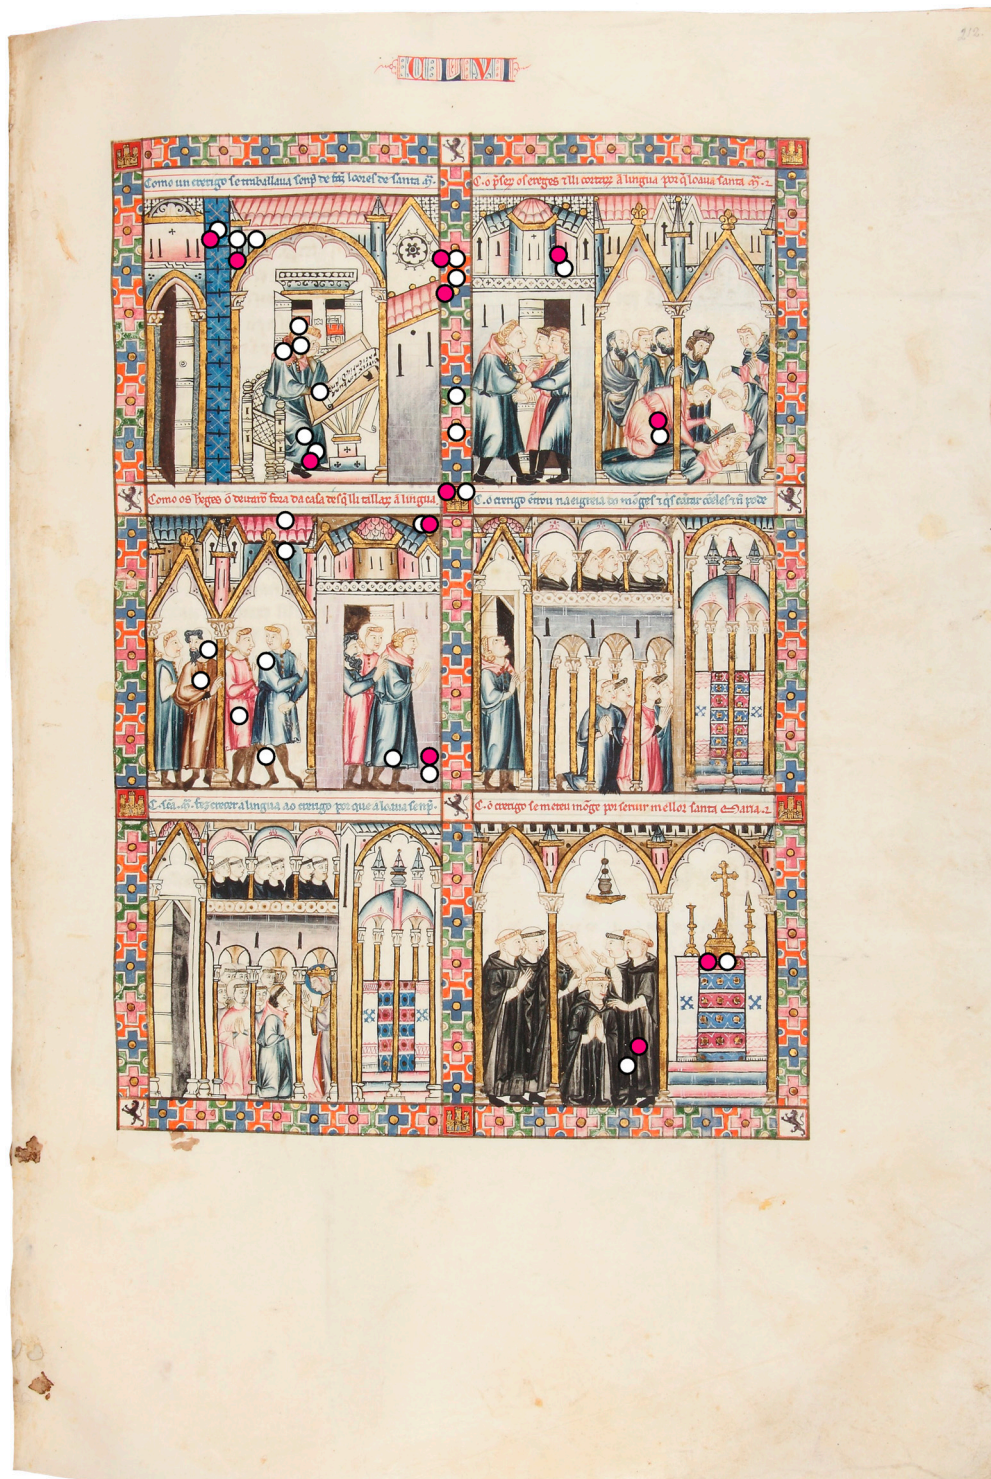 212.
CLVI
Como un crerigo se traballaua senp̃ de fazer loores de santa m̃.
C. o p̃serõ os ereges ⁊ lli cortarõ a lingua por q̃ loaua santa m̃.
Como os hereges o deitarõ fora da casa desq̃ lli tallarõ a lingua
C. o crerigo entrou na eigreia
C. sc̃a m̃. fez creçer a lingua ao crerigo por que a loaua senp̃.
C. o crerigo se meteu mõge por seruir mellor santa Maria.